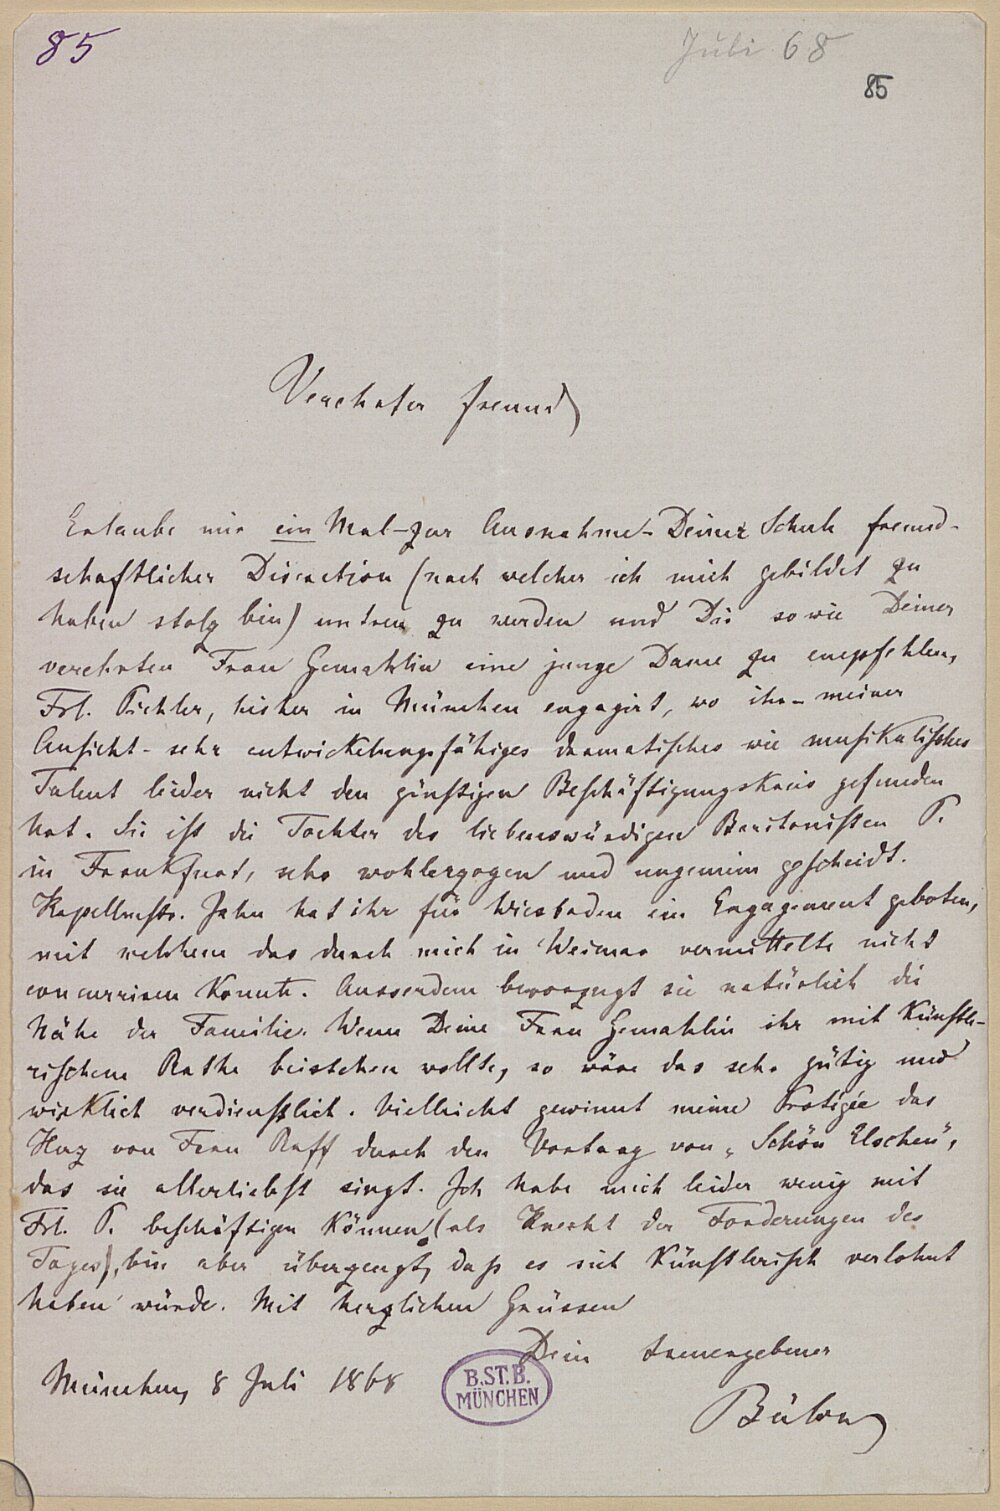 85
Juli 68
85
Verehrter Freund
Erlaube mir ein Mal – zur Ausnahme – Deiner Schule freund-
schaftlicher Discretion (nach welcher ich mich gebildet zu
haben stolz bin) untreu zu werden und Dir sowie Deiner
verehrten Frau Gemahlin eine junge Dame zu empfehlen,
Frl. Pichler, bisher in München engagirt, wo ihr – meiner
Ansicht – sehr entwickelungsfähiges dramatisches wie musikalisches
Talent leider nicht den günstigen Beschäftigungskreis gefunden
hat. Sie ist die Tochter des liebenswürdigen Baritonisten P.
in Frankfurt, sehr wohlerzogen und ungemein gescheidt.
Kapellmstr. Jahn hat ihr für Wiesbaden ein Engagement geboten,
mit welchem das durch mich in Weimar vermittelte nicht
concurriren konnte. Ausserdem bevorzugt sie natürlich die
Nähe der Familie. Wenn Deine Frau Gemahlin ihr mit künstle-
rischem Rathe beistehen wollte, so wäre das sehr gütig und
wirklich verdienstlich. Vielleicht gewinnt meine Protégée das
Herz von Frau Raff durch den Vortrag von „Schön Elschen",
das sie allerliebst singt. Ich habe mich leider wenig mit
Frl. P. beschäftigen können (als Knecht der Forderungen des
Tages), bin aber überzeugt, daß es sich künstlerisch verlohnt
haben würde. Mit herzlichen Grüssen
Dein treuergebener
München, 8 Juli 1868
B.ST.B.
MÜNCHEN
Bülow